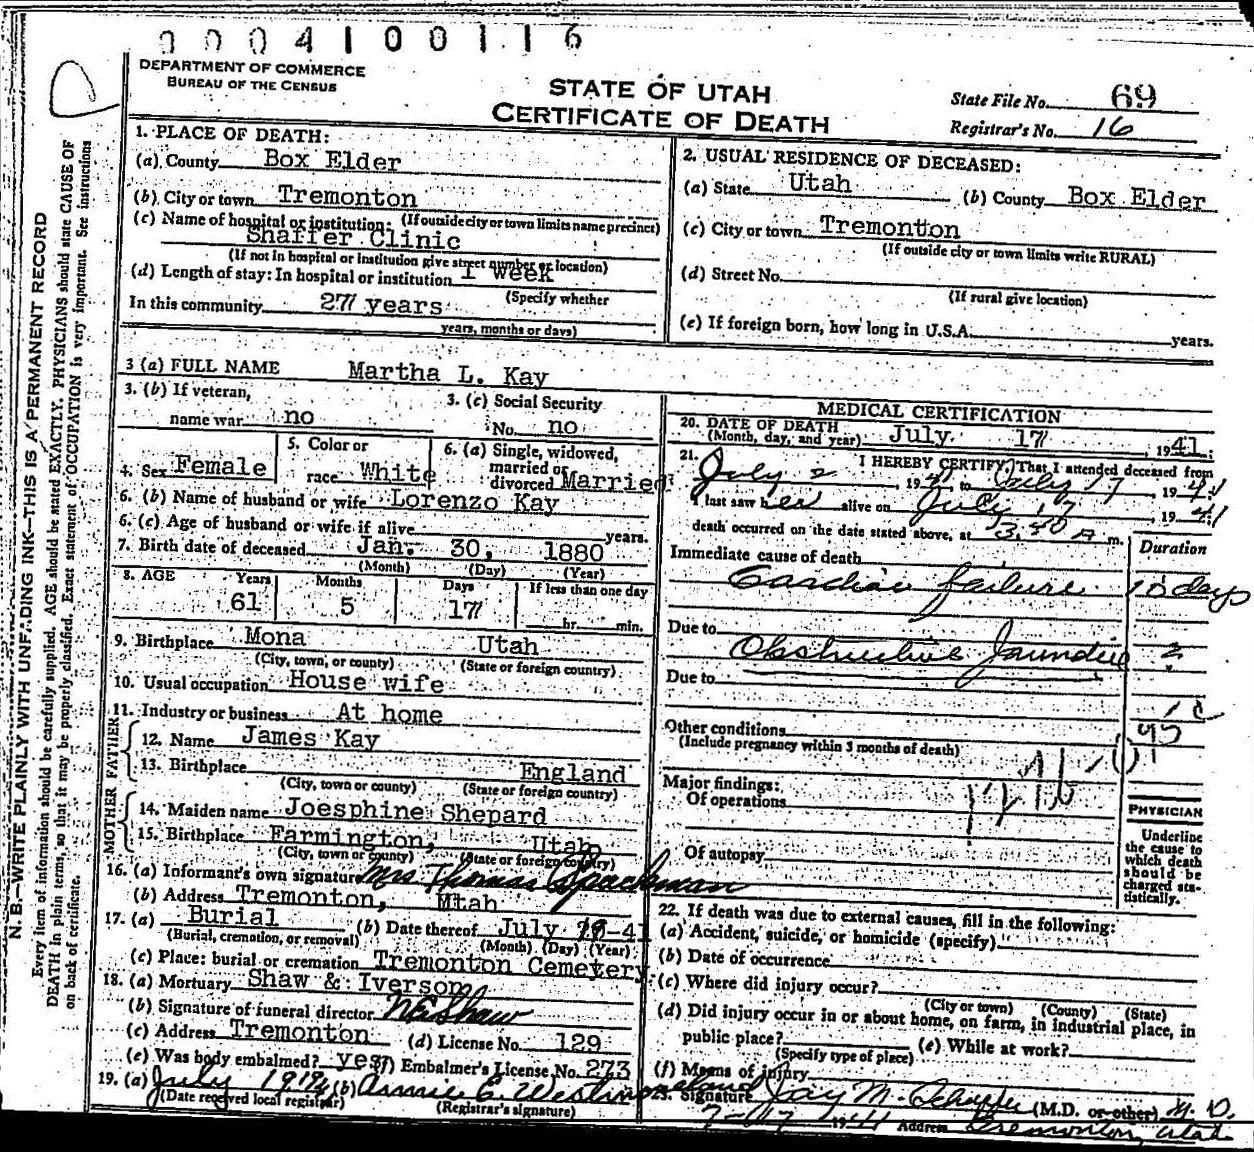 0 0 0 4 1 0 0 1 1 6
DEPARTMENT OF COMMERCE
BUREAU OF THE CENSUS
STATE OF UTAH
CERTIFICATE OF DEATH
State File No. 69
Registrar's No. 16
N. B.—WRITE PLAINLY WITH UNFADING INK—THIS IS A PERMANENT RECORD
Every item of information should be carefully supplied. AGE should be stated EXACTLY. PHYSICIANS should state CAUSE OF
DEATH in plain terms, so that it may be properly classified. Exact statement of OCCUPATION is very important. See instructions
on back of certificate.
1. PLACE OF DEATH:
(a) County Box Elder
(b) City or town Tremonton
(If outside city or town limits name precinct)
(c) Name of hospital or institution:
Shaffer Clinic
(If not in hospital or institution give street number or location)
(d) Length of stay: In hospital or institution 1 week
(Specify whether
In this community 27 years
years, months or days)
2. USUAL RESIDENCE OF DECEASED:
(a) State Utah (b) County Box Elder
(c) City or town Tremonton
(If outside city or town limits write RURAL)
(d) Street No.
(If rural give location)
(e) If foreign born, how long in U.S.A. years.
3 (a) FULL NAME Martha L. Kay
3. (b) If veteran,
name war no
3. (c) Social Security
No. no
4. Sex Female
5. Color or
race White
6. (a) Single, widowed,
married or
divorced Married
6. (b) Name of husband or wife Lorenzo Kay
6. (c) Age of husband or wife if alive years.
7. Birth date of deceased Jan. 30, 1880
(Month) (Day) (Year)
8. AGE Years Months Days If less than one day
61 5 17 hr. min.
9. Birthplace Mona Utah
(City, town, or county) (State or foreign country)
10. Usual occupation House wife
11. Industry or business At home
FATHER
12. Name James Kay
13. Birthplace England
(City, town or county) (State or foreign country)
MOTHER
14. Maiden name Joesphine Shepard
15. Birthplace Farmington, Utah
(City, town or county) (State or foreign country)
16. (a) Informant's own signature Mrs Thomas Spackman
(b) Address Tremonton, Utah
17. (a) Burial (b) Date thereof July 19-41
(Burial, cremation, or removal) (Month) (Day) (Year)
(c) Place: burial or cremation Tremonton Cemetery
18. (a) Mortuary Shaw & Iverson
(b) Signature of funeral director N E Shaw
(c) Address Tremonton (d) License No. 129
(e) Was body embalmed? yes (f) Embalmer's License No. 273
19. (a) July 19 (b) Annie E.
(Date received local registrar) (Registrar's signature)
MEDICAL CERTIFICATION
20. DATE OF DEATH
(Month, day, and year) July 17 1941
21. I HEREBY CERTIFY, That I attended deceased from
July 2 1941 to July 17, 1941
I last saw her alive on July 17, 1941
death occurred on the date stated above, at 3:30 A m.
Immediate cause of death Duration
Cardiac failure 10 days
Due to
Obstructive Jaundice 2
Due to
Other conditions
(Include pregnancy within 3 months of death)
Major findings:
Of operations
Of autopsy
PHYSICIAN
Underline
the cause to
which death
should be
charged sta-
tistically.
22. If death was due to external causes, fill in the following:
(a) Accident, suicide, or homicide (specify)
(b) Date of occurrence
(c) Where did injury occur?
(City or town) (County) (State)
(d) Did injury occur in or about home, on farm, in industrial place, in
public place? (e) While at work?
(Specify type of place)
(f) Means of injury
23. Signature Jay M. Schaffer (M.D. or other) M. D.
7-17 1941 Address Tremonton, Utah